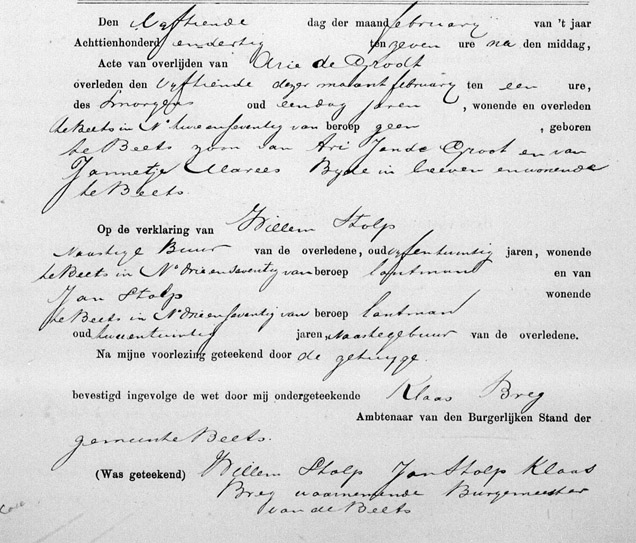 Den Vyftiende dag der maand february van 't jaar
Achttienhonderd en dertig ten zeven ure na den middag,
Acte van overlijden van Arie de Groodt
overleden den vyftiende dezer maant february ten een ure,
des smorgens oud eendag jaren , wonende en overleden
te Beets in No twee en seventig van beroep geen , geboren
te Beets zoon van Ari Jande Groot en van
Jannetje Marees Byde in leeven en wonende
te Beets.
Op de verklaring van Willem Stolp
Naastige Buur van de overledene, oud vyfentwintig jaren, wonende
te Beets in No drie en seventig van beroep lantman en van
Jan Stolp wonende
te Beets in No drie en seventig van beroep lantman
oud tweentwintig jaren, Naastegebuur van de overledene.
Na mijne voorlezing geteekend door de getuyge.
bevestigd ingevolge de wet door mij ondergeteekende Klaas Breg
Ambtenaar van den Burgerlijken Stand der
gemeente Beets.
(Was geteekend) Willem Stolp Jan Stolp Klaas
Breg waarnemende Burgemeester
van de Beets